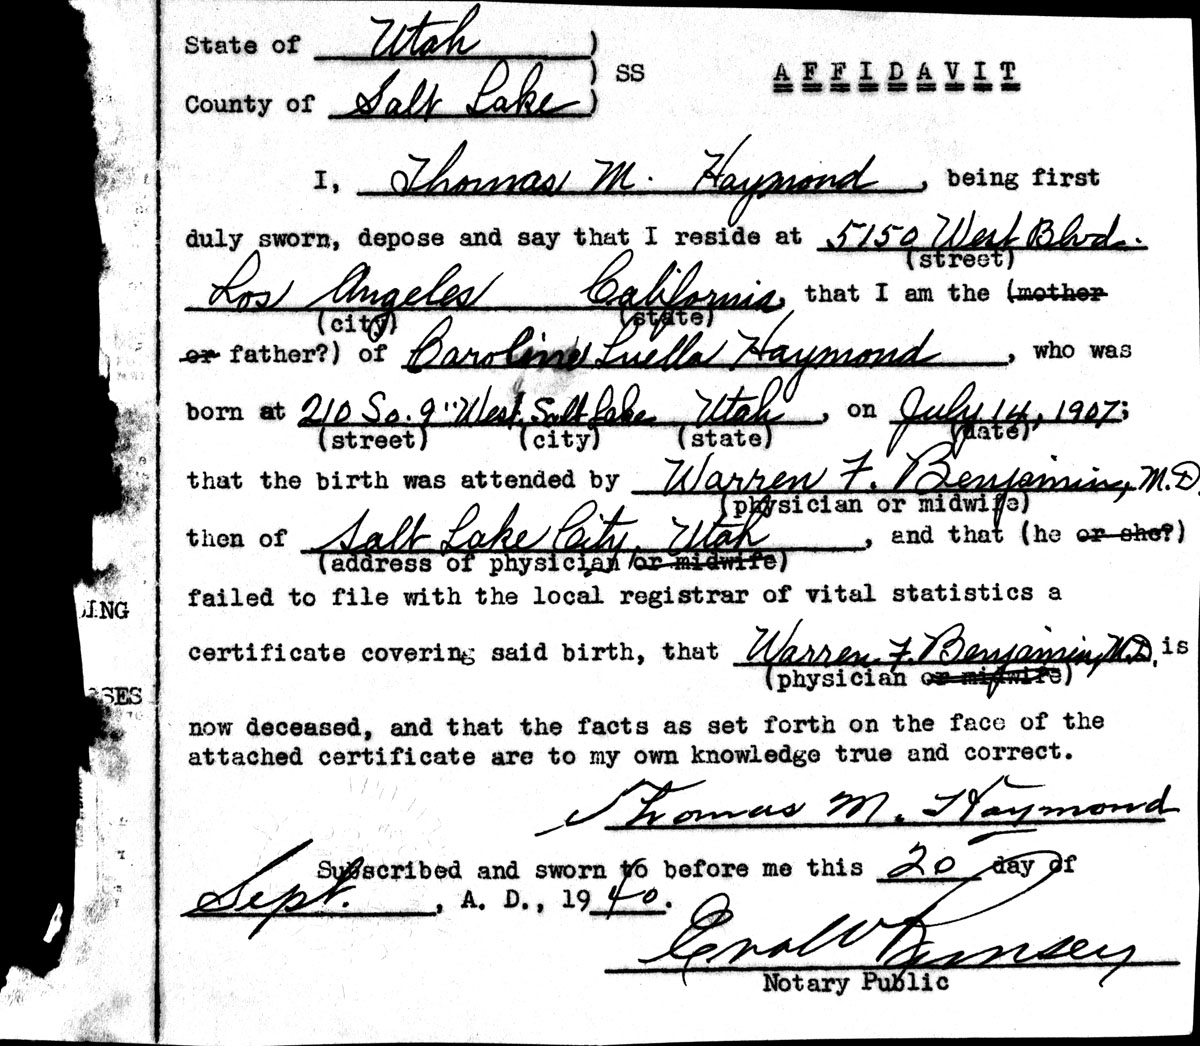 State of Utah )
) SS
AFFIDAVIT
County of Salt Lake )
I, Thomas M. Haymond, being first
duly sworn, depose and say that I reside at 5150 West Blvd.
(street)
Los Angeles California, that I am the (mother
(city) (state)
or father?) of Caroline Luella Haymond, who was
born at 210 So. 9" West, Salt Lake Utah, on July 14, 1907;
(street) (city) (state) (date)
that the birth was attended by Warren F. Benjamin, M.D.
(physician or midwife)
then of Salt Lake City, Utah, and that (he or she?)
(address of physician or midwife)
failed to file with the local registrar of vital statistics a
certificate covering said birth, that Warren F. Benjamin, M.D. is
(physician or midwife)
now deceased, and that the facts as set forth on the face of the
attached certificate are to my own knowledge true and correct.
Thomas M. Haymond
Subscribed and sworn to before me this 20 day of
Sept., A. D., 1940.
Rumsey
Notary Public